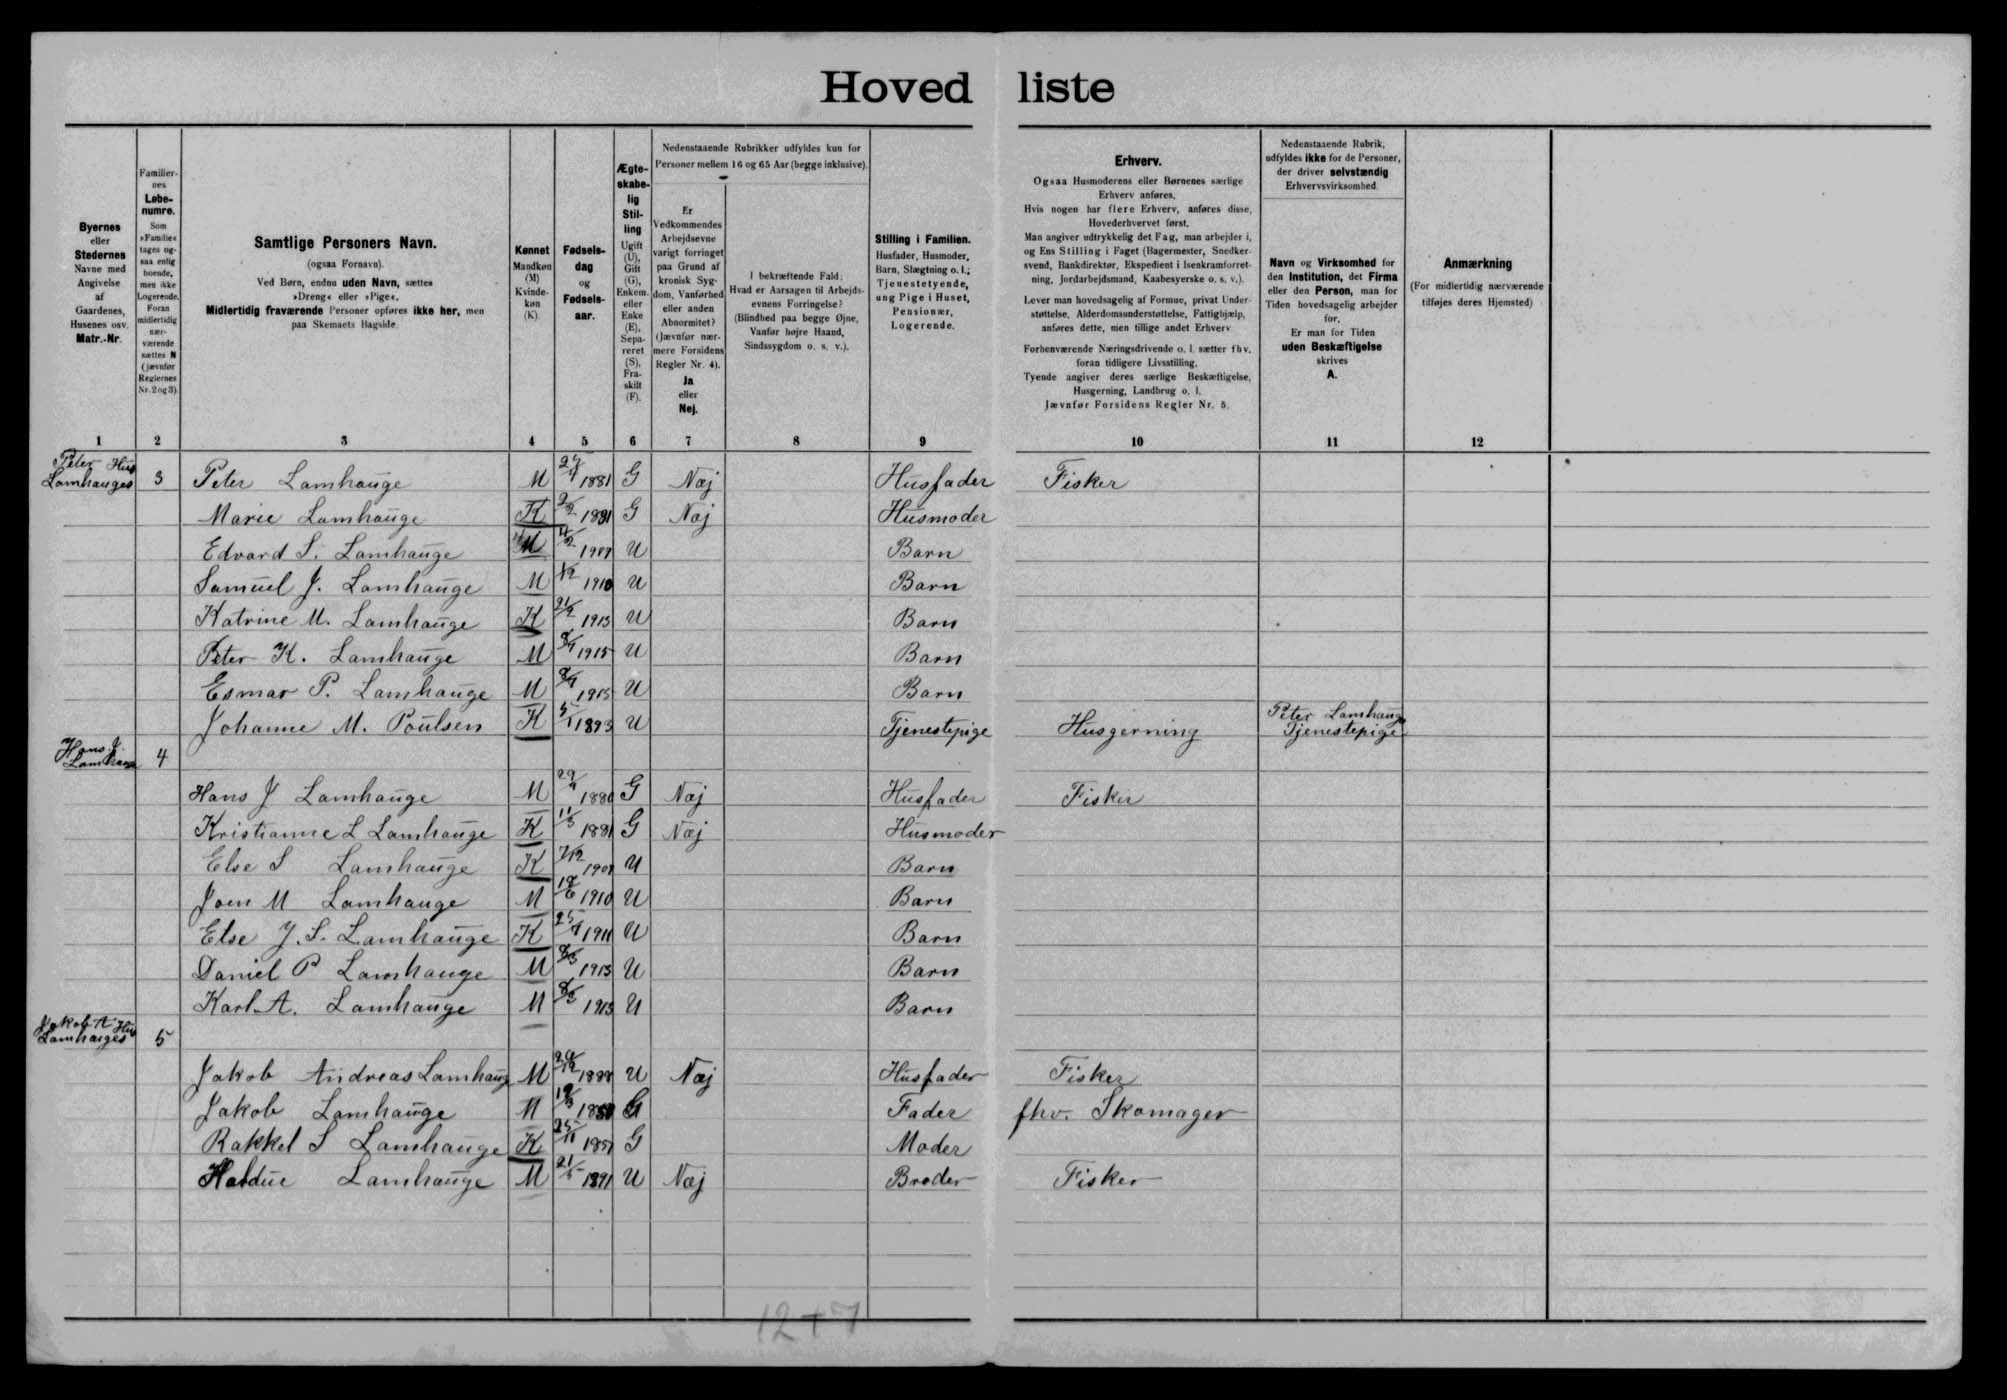 Hoved liste
Byernes
eller
Stedernes
Navne med
Angivelse
af
Gaardenes,
Husenes osv.
Matr.-Nr.
Familier-
nes
Løbe-
numre.
Som
»Familie«
tages og-
saa enlig
boende,
men ikke
Logerende.
Foran
midlertidig
nær-
værende
sættes N
(jævnfør
Reglernes
Nr. 2 og 3).
Samtlige Personers Navn.
(ogsaa Fornavn).
Ved Børn, endnu uden Navn, sættes
»Dreng« eller »Pige«.
Midlertidig fraværende Personer opføres ikke her, men
paa Skemaets Bagside.
Kønnet
Mandkøn
(M)
Kvinde-
køn
(K).
Fødsels-
dag
og
Fødsels-
aar.
Ægte-
skabe-
lig
Stil-
ling
Ugift
(U),
Gift
(G),
Enkem.
eller
Enke
(E),
Sepa-
reret
(S),
Fra-
skilt
(F).
Nedenstaaende Rubrikker udfyldes kun for
Personer mellem 16 og 65 Aar (begge inklusive).
Er
Vedkommendes
Arbejdsevne
varigt forringet
paa Grund af
kronisk Syg-
dom, Vanførhed
eller anden
Abnormitet?
(Jævnfør nær-
mere Forsidens
Regler Nr. 4).
Ja
eller
Nej.
I bekræftende Fald:
Hvad er Aarsagen til Arbejds-
evnens Forringelse?
(Blindhed paa begge Øjne,
Vanfør højre Haand,
Sindssygdom o. s. v.).
Stilling i Familien.
Husfader, Husmoder,
Barn, Slægtning o. l.;
Tjenestetyende,
ung Pige i Huset,
Pensionær,
Logerende.
Erhverv.
Ogsaa Husmoderens eller Børnenes særlige
Erhverv anføres.
Hvis nogen har flere Erhverv, anføres disse,
Hovederhvervet først.
Man angiver udtrykkelig det Fag, man arbejder i,
og Ens Stilling i Faget (Bagermester, Snedker-
svend, Bankdirektør, Ekspedient i Isenkramforret-
ning, Jordarbejdsmand, Kaabesyerske o. s. v.).
Lever man hovedsagelig af Formue, privat Under-
støttelse, Alderdomsunderstøttelse, Fattighjælp,
anføres dette, men tillige andet Erhverv
Forhenværende Næringsdrivende o. l. sætter fhv.
foran tidligere Livsstilling.
Tyende angiver deres særlige Beskæftigelse,
Husgerning, Landbrug o. l.
Jævnfør Forsidens Regler Nr. 5.
Nedenstaaende Rubrik,
udfyldes ikke for de Personer,
der driver selvstændig
Erhvervsvirksomhed.
Navn og Virksomhed for
den Institution, det Firma
eller den Person, man for
Tiden hovedsagelig arbejder
for.
Er man for Tiden
uden Beskæftigelse
skrives
A.
Anmærkning
(For midlertidig nærværende
tilføjes deres Hjemsted)
1 2 3 4 5 6 7 8 9 10 11 12
Peter Hus
Lamhauges 3 Peter Lamhauge M 1881 G Nej Husfader Fisker
Marie Lamhauge K 1881 G Nej Husmoder
Edvard S. Lamhauge M U Barn
Samuel J. Lamhauge M 1910 U Barn
Katrine M. Lamhauge K 21/2 1913 U Barn
Peter K. Lamhauge M 1915 U Barn
Esmar P. Lamhauge M 1915 U Barn
Johanne M. Poulsen K 1893 U Tjenestepige Husgerning Peter Lamhauge
Tjenestepige
Hans J.
Lamhauge 4
Hans J Lamhauge M 1880 G Nej Husfader Fisker
Kristianne L Lamhauge K 11/3 1881 G Nej Husmoder
Else S Lamhauge K 7/12 U Barn
Joen M Lamhauge M 1910 U Barn
Else J. S. Lamhauge K 1911 U Barn
Daniel P Lamhauge M 8/3 1913 U Barn
Karl A. Lamhauge M 8/3 1913 U Barn
Jakob A Hus
Lamhauges 5
Jakob Andreas Lamhauge M U Nej Husfader Fisker
Jakob Lamhauge M G Fader fhv. Skomager
Rakkel S Lamhauge K 25/11 G Moder
Lamhauge M 21/5 1891 U Nej Broder Fisker
12+7